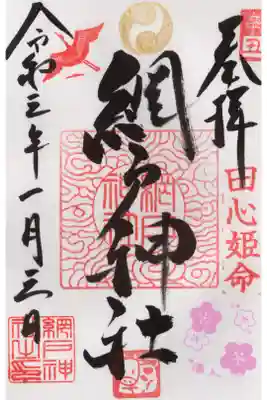 辛丑
奉拝
田心姫命
網戸神社
令和三年一月三日
網戸神
社之印